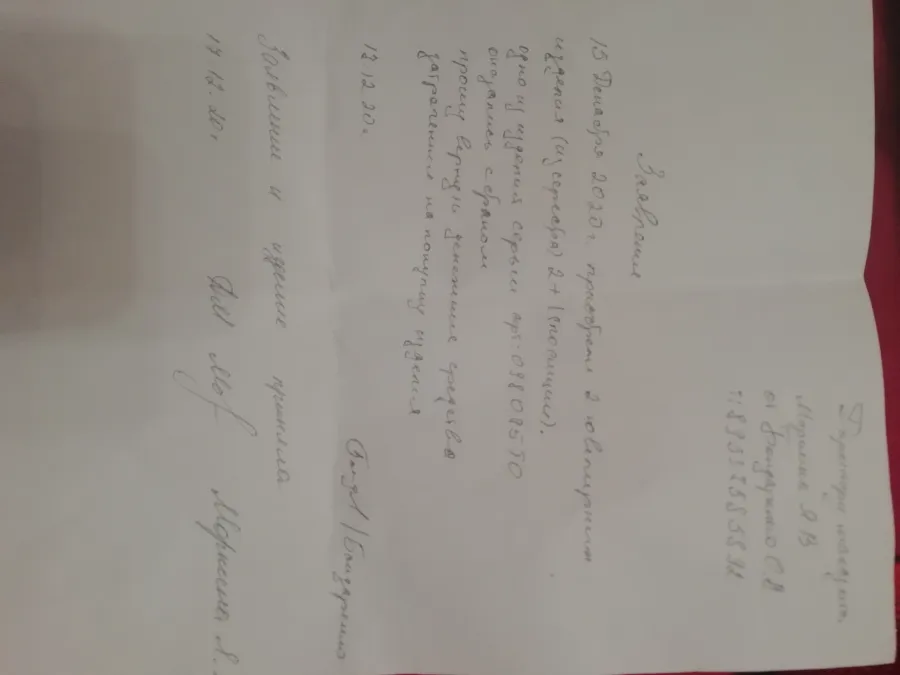 Директору магазина
Моркина Я В
от Бондаренко С.А
Заявление
15 Декабря 2020г. приобрела 2 ювелирных
изделия (из серебра) 2+1 (по акции).
одно из изделия серьги арт. 038085 ТО
оказались с браком
прошу вернуть денежные средства
затраченные на покупку изделия
17.12.20г.
/Бондаренко
Заявление и изделие приняла
17.12.20г.
Моркина Я.